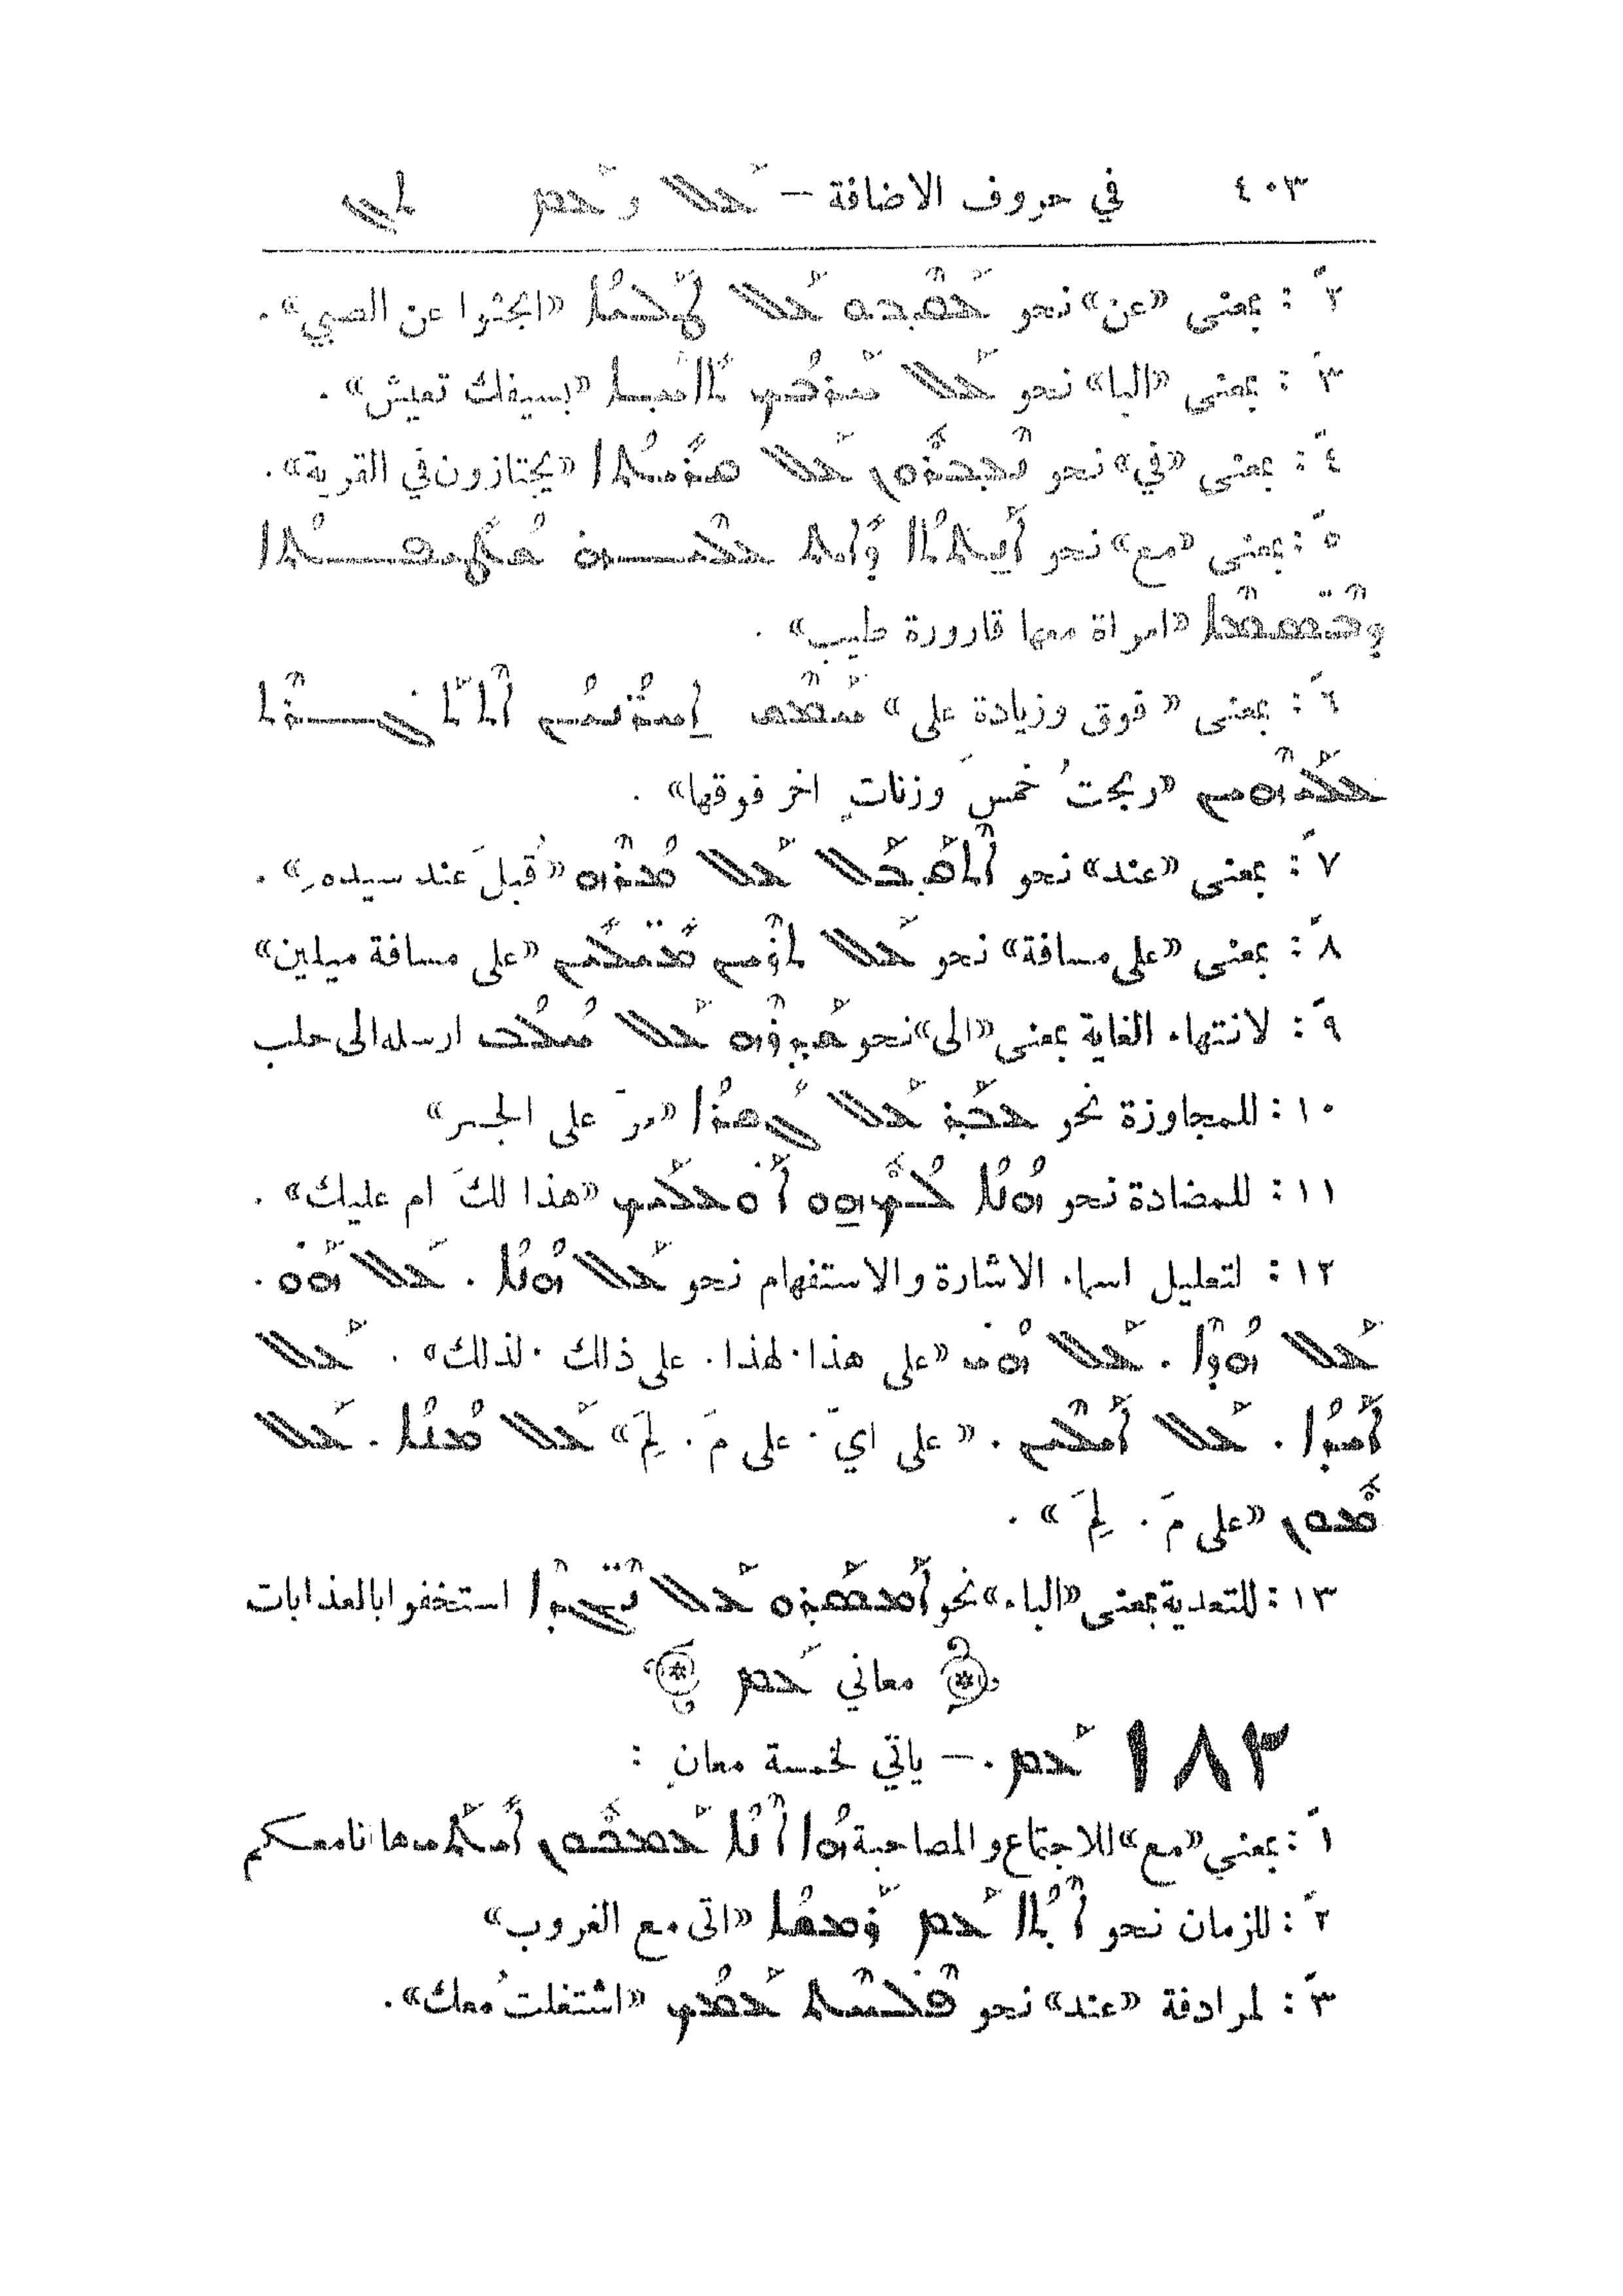 ٤٠٣ في حروف الاضافة – ܥܰܠ ܘ ܥܰܡ ܬܓ
٢ً : بمعنى «عن» نحو ܥܰܩܶܒܘ ܥܰܠ ܛܰܠܝܳܐ «ابحثوا عن الصبي» .
٣ً : بمعنى «البا» نحو ܥܰܠ ܚܰܪܒܳܟ ܬܺܐܚܶܐ «بسيفك تعيش» .
٤ً : بمعنى «في» نحو ܥܰܠ ܩܪܺܝܬܳܐ «يجتازون في القرية» .
٥ً : بمعنى «مع» نحو ܐܰܢ̱ܬܬܳܐ ܕܺܐܝܬ ܥܠܶܝܗ ܫܛܝܦܬܳܐ
ܕܒܶܣ̈ܡܶܐ «امراة معها قارورة طيب» .
٦ً : بمعنى « فوق وزيادة على» ܚܰܡܶܫ ܐ̱ܚܪܳܢܝܳܢ ܐܶܬܬܰܓܪܶܬ
ܥܠܰܝܗܶܝܢ «ربحتُ خمسَ وزناتٍ اخر فوقها» .
٧ً : بمعنى «عند» نحو ܐܶܬܩܰܒܰܠ ܥܰܠ ܡܳܪܶܗ «قُبلَ عند سيدهِ» .
٨ً : بمعنى «على مسافة» نحو ܥܰܠ ܬܪܶܝܢ ܡܺܝ̈ܠܝܼܢ «على مسافة ميلين»
٩ً : لانتهاء الغاية بمعنى «الى» نحو ܫܰܕܪܶܗ ܥܰܠ ܚܳܠܳܒ ارسله الى حلب
١٠ : للمجاوزة نحو ܥܒܰܪ ܥܰܠ ܓܺܫܪܳܐ «مرّ على الجسر»
١١ : للمضادة نحو ܗܳܢܳܐ ܠܳܟ ܗ̱ܘ ܐܰܘ ܥܠܰܝܟ «هذا لكَ ام عليك» .
١٢ : لتعليل اسماء الاشارة والاستفهام نحو ܥܰܠ ܗܳܢܳܐ . ܥܰܠ ܗܰܘ .
ܥܰܠ ܗܳܕܶܐ . ܥܰܠ ܗܳܝ «على هذا . لهذا . على ذالك . لذلك» . ܥܰܠ
ܐܰܝܕܳܐ . ܥܰܠ ܐܰܝܠܶܝܢ . « على ايّ . على مَ . لِمَ» ܥܰܠ ܡܳܢܳܐ . ܥܰܠ
ܡܽܘܢ «على مَ . لِمَ » .
١٣ : للتعدية بمعنى «الباء» نحو ܥܰܠ ܢܶܓ̈ܕܶܐ استخفوا بالعذابات
معاني ܥܰܡ
١٨٣ ܥܰܡ .– ياتي لخمسة معانٍ :
١ً : بمعنى «مع» للاجتماع والمصاحبة ܗܳܐ ܐܶܢܳܐ ܥܰܡܟܽܘܢ ܐܺܝܬܰܝ ها انا معكم
٢ً : للزمان نحو ܐܶܬܳܐ ܥܰܡ ܪܰܡܫܳܐ «اتى مع الغروب»
٣ً : لمرادفة «عند» نحو ܦܶܠܚܶܬ ܥܰܡܳܟ «اشتغلتُ معك» .